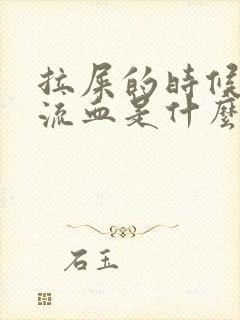 拉屎的時候
流血是什麼
石玉